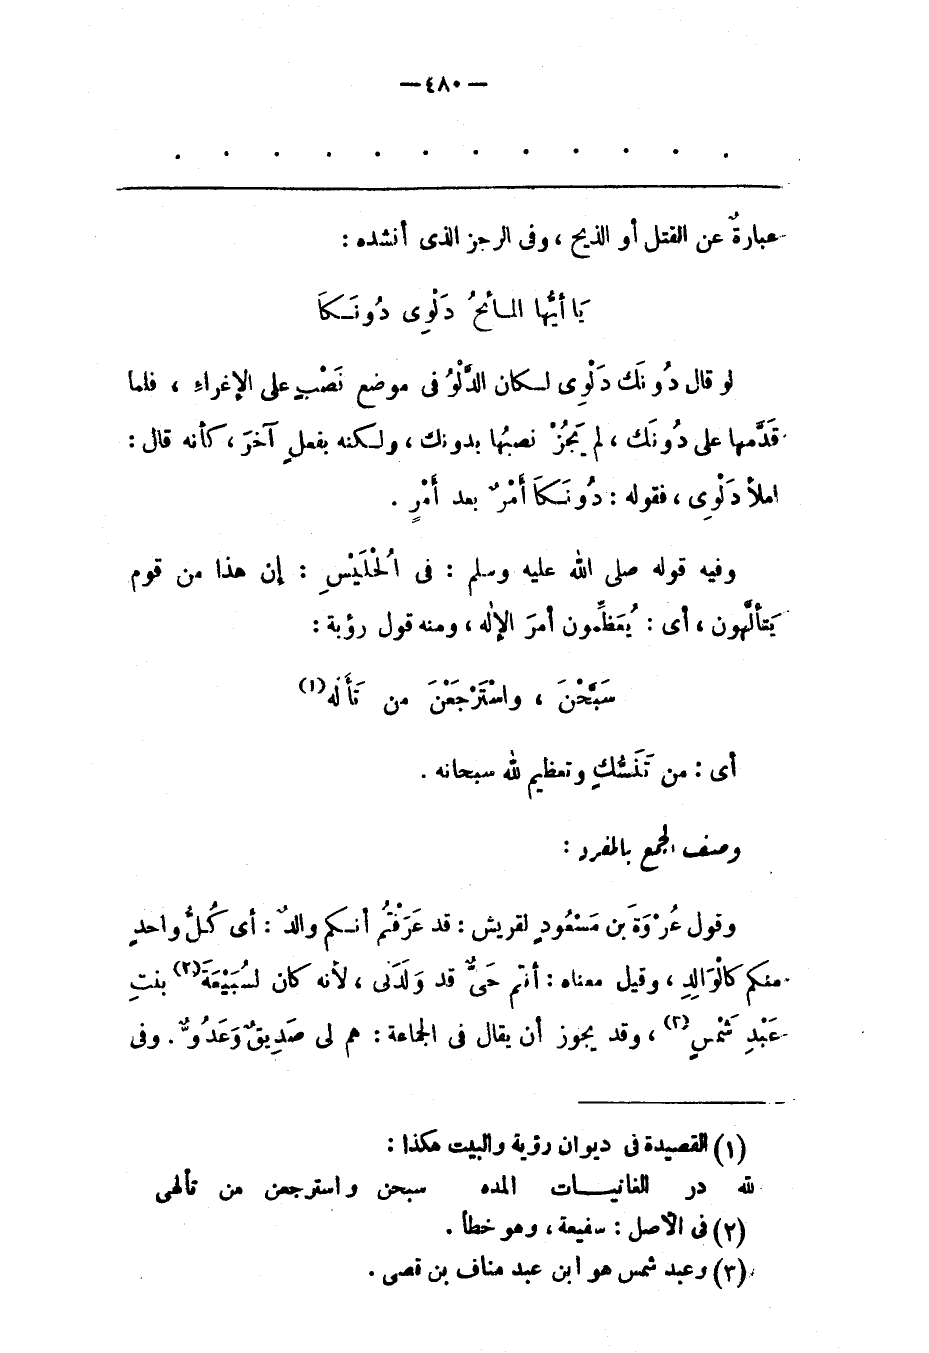 — ٤٨٠ —
. . . . . . . . . . . .
عبارةٌ عن القتل أو الذبح ، وفى الرجز الذى أنشده :
يَا أيُّها المـائحُ دَلْوِى دُونَـكاَ
لو قال دُونَك دَلْوِى لـكان الدَّلْوُ فى موضع نَصْبٍ على الإغراءِ ، فلما
قَدَّمها على دُونَك ، لم يَجُزْ نصبُها بدونك ، ولـكنه بفعلٍ آخرَ ، كأنه قال :
املأ دَلْوِى ، فقوله : دُونَـكَاَ أَمْرٌ بعد أَمْرٍ .
وفيه قوله صلى الله عليه وسلم : فى الُحْلَيْسِ : إن هذا من قوم
يَتألَّهون ، أى : يُعَظِّمون أمرَ الإلٰه ، ومنه قول رؤبة :
سَبَّحْنَ ، واسْتَرْجَعْنَ من تَأَلُه(١)
أى : من تَنَسُّكٍ وتعظيم لله سبحانه .
وصف الجمع بالمفرد :
وقول عُرْوَةَ بن مَسْعُودٍ لقريش : قد عَرَفْتُم أنـكم والدٌ : أى كُلُّ واحدٍ
منكم كالْوَالِدِ ، وقيل معناه : أنتم حَىٌّ قد وَلَدَنى ، لأنه كان لسُبَيْعَةَ(٢) بنتِ
عَبْدِ شَمْسٍ(٣) ، وقد يجوز أن يقال فى الجماعة : هم لى صَدِيقٌ وَعَدُوٌّ . وفى
(١) القصيدة فى ديوان رؤبة والبيت هكذا :
لله در الغانيـــات المده سبحن واسترجعن من تألهى
(٢) فى الأصل : سفيعة ، وهو خطأ .
(٣) وعبد شمس هو ابن عبد مناف بن قصى .